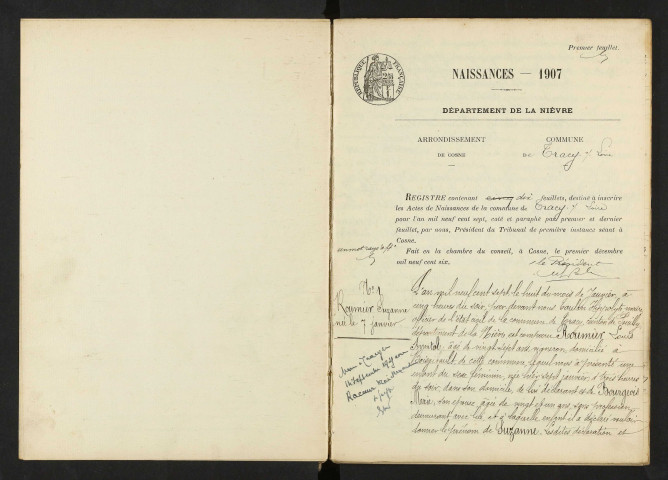 Premier feuillet.
RÉPUBLIQUE FRANÇAISE
NAISSANCES — 1907
DÉPARTEMENT DE LA NIÈVRE
ARRONDISSEMENT COMMUNE
DE COSNE DE Tracy s/ Loire
REGISTRE contenant cinq dix feuillets, destiné à inscrire
les Actes de Naissances de la commune de Tracy s/ Loire
pour l'an mil neuf cent sept, coté et paraphé par premier et dernier
feuillet, par nous, Président du Tribunal de première instance séant à
Cosne.
Fait en la chambre du conseil, à Cosne, le premier décembre
mil neuf cent six.
un mot rayé
Le Président
No 1
Roumier Suzanne
née le 7 janvier
L'an mil neuf cent sept le huit du mois de Janvier, à
cinq heures du soir, par devant nous
officier de l'Etat civil de la commune de Tracy, canton de Pouilly,
département de la Nièvre est comparu Roumier Louis
âgé de vingt sept ans, vigneron, domicilié à
de cette commune, lequel nous a présenté un
enfant du sexe féminin, née le sept janvier à trois heures
du soir, dans son domicile, de lui déclarant et de Bourgeois
Marie, son épouse, âgée de vingt et un ans, sans profession,
demeurant avec lui et à laquelle enfant il a déclaré vouloir
donner le prénom de Suzanne. Lesdites déclaration et